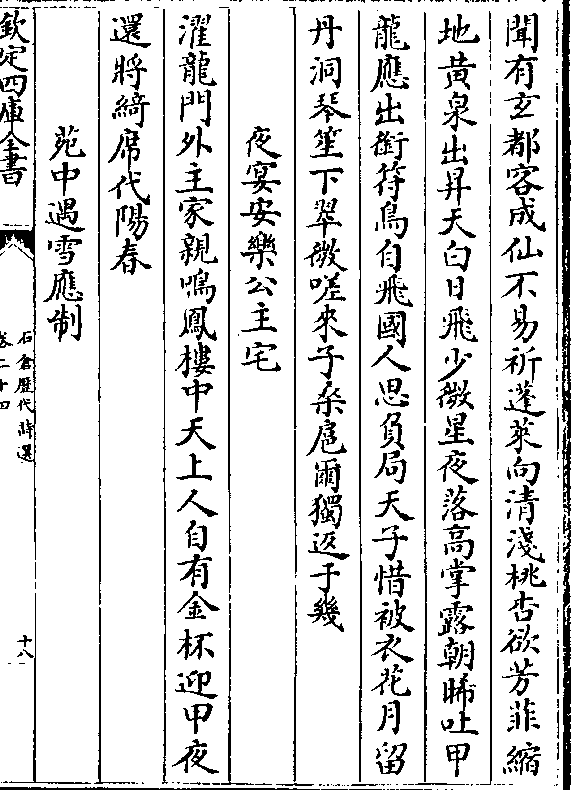 聞有玄都客成仙不易祈蓬萊向清淺桃杏欲芳菲縮
地黄泉出昇天白日飛少微星夜落高掌露朝晞吐甲
龍應出銜符鳥自飛國人思負局天子惜被衣花月留
丹洞琴笙下翠微嗟來子桑扈爾獨返于幾
夜宴安樂公主宅
濯龍門外主家親鳴鳳樓中天上人自有金杯迎甲夜
還將綺席代陽春
苑中遇雪應制
欽定四庫全書
石倉歷代詩選
卷二十四
十八